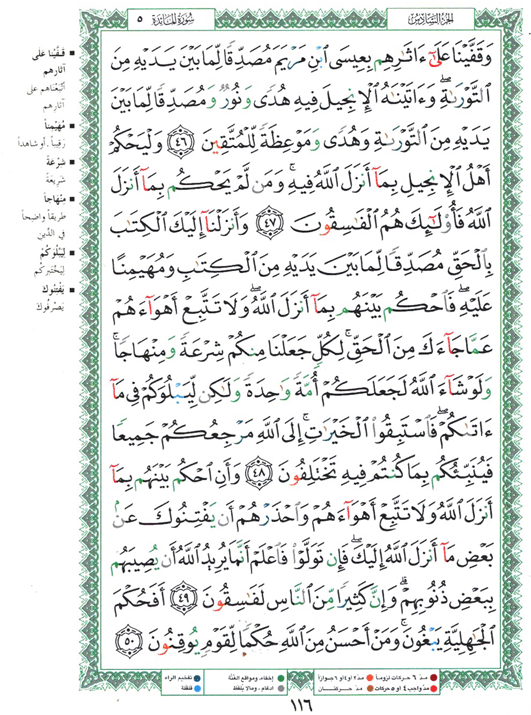 الجزء السادس
سورة المائدة
٥
وَقَفَّيْنَا عَلَىٰٓ ءَاثَٰرِهِم بِعِيسَى ٱبْنِ مَرْيَمَ مُصَدِّقًا لِّمَا بَيْنَ يَدَيْهِ مِنَ
ٱلتَّوْرَىٰةِ ۖ وَءَاتَيْنَٰهُ ٱلْإِنجِيلَ فِيهِ هُدًى وَنُورٌ وَمُصَدِّقًا لِّمَا بَيْنَ
يَدَيْهِ مِنَ ٱلتَّوْرَىٰةِ وَهُدًى وَمَوْعِظَةً لِّلْمُتَّقِينَ ٤٦ وَلْيَحْكُمْ
أَهْلُ ٱلْإِنجِيلِ بِمَآ أَنزَلَ ٱللَّهُ فِيهِ ۚ وَمَن لَّمْ يَحْكُم بِمَآ أَنزَلَ
ٱللَّهُ فَأُو۟لَٰٓئِكَ هُمُ ٱلْفَٰسِقُونَ ٤٧ وَأَنزَلْنَآ إِلَيْكَ ٱلْكِتَٰبَ
بِٱلْحَقِّ مُصَدِّقًا لِّمَا بَيْنَ يَدَيْهِ مِنَ ٱلْكِتَٰبِ وَمُهَيْمِنًا
عَلَيْهِ ۖ فَٱحْكُم بَيْنَهُم بِمَآ أَنزَلَ ٱللَّهُ ۖ وَلَا تَتَّبِعْ أَهْوَآءَهُمْ
عَمَّا جَآءَكَ مِنَ ٱلْحَقِّ ۚ لِكُلٍّ جَعَلْنَا مِنكُمْ شِرْعَةً وَمِنْهَاجًا ۚ
وَلَوْ شَآءَ ٱللَّهُ لَجَعَلَكُمْ أُمَّةً وَٰحِدَةً وَلَٰكِن لِّيَبْلُوَكُمْ فِى مَآ
ءَاتَىٰكُمْ ۖ فَٱسْتَبِقُوا۟ ٱلْخَيْرَٰتِ ۚ إِلَى ٱللَّهِ مَرْجِعُكُمْ جَمِيعًا
فَيُنَبِّئُكُم بِمَا كُنتُمْ فِيهِ تَخْتَلِفُونَ ٤٨ وَأَنِ ٱحْكُم بَيْنَهُم بِمَآ
أَنزَلَ ٱللَّهُ وَلَا تَتَّبِعْ أَهْوَآءَهُمْ وَٱحْذَرْهُمْ أَن يَفْتِنُوكَ عَنۢ
بَعْضِ مَآ أَنزَلَ ٱللَّهُ إِلَيْكَ ۖ فَإِن تَوَلَّوْا۟ فَٱعْلَمْ أَنَّمَا يُرِيدُ ٱللَّهُ أَن يُصِيبَهُم
بِبَعْضِ ذُنُوبِهِمْ ۗ وَإِنَّ كَثِيرًا مِّنَ ٱلنَّاسِ لَفَٰسِقُونَ ٤٩ أَفَحُكْمَ
ٱلْجَٰهِلِيَّةِ يَبْغُونَ ۚ وَمَنْ أَحْسَنُ مِنَ ٱللَّهِ حُكْمًا لِّقَوْمٍ يُوقِنُونَ ٥٠
قَفَّيْنَا عَلَى
آثَارِهم
أتْبَعْنَاهم على
آثارِهم
مُهَيْمِناً
رقيباً . أو شاهداً
شِرْعَةً
شريعةً
مِنْهَاجاً
طريقاً واضحاً
في الدِّين
لِيَبْلُوَكُمْ
لِيَخْتَبِرَكُم
يَفْتِنُوكَ
يَصْرِفُوكَ
مدّ ٦ حركات لزوماً
مدّ ٢ أو ٤ أو ٦ جوازاً
إخفاء، ومواقع الغُنَّة
تفخيم الراء
مدّ واجب ٤ أو ٥ حركات
مدّ حركتان
إدغام، وما لا يُلفظ
قلقلة
١١٦